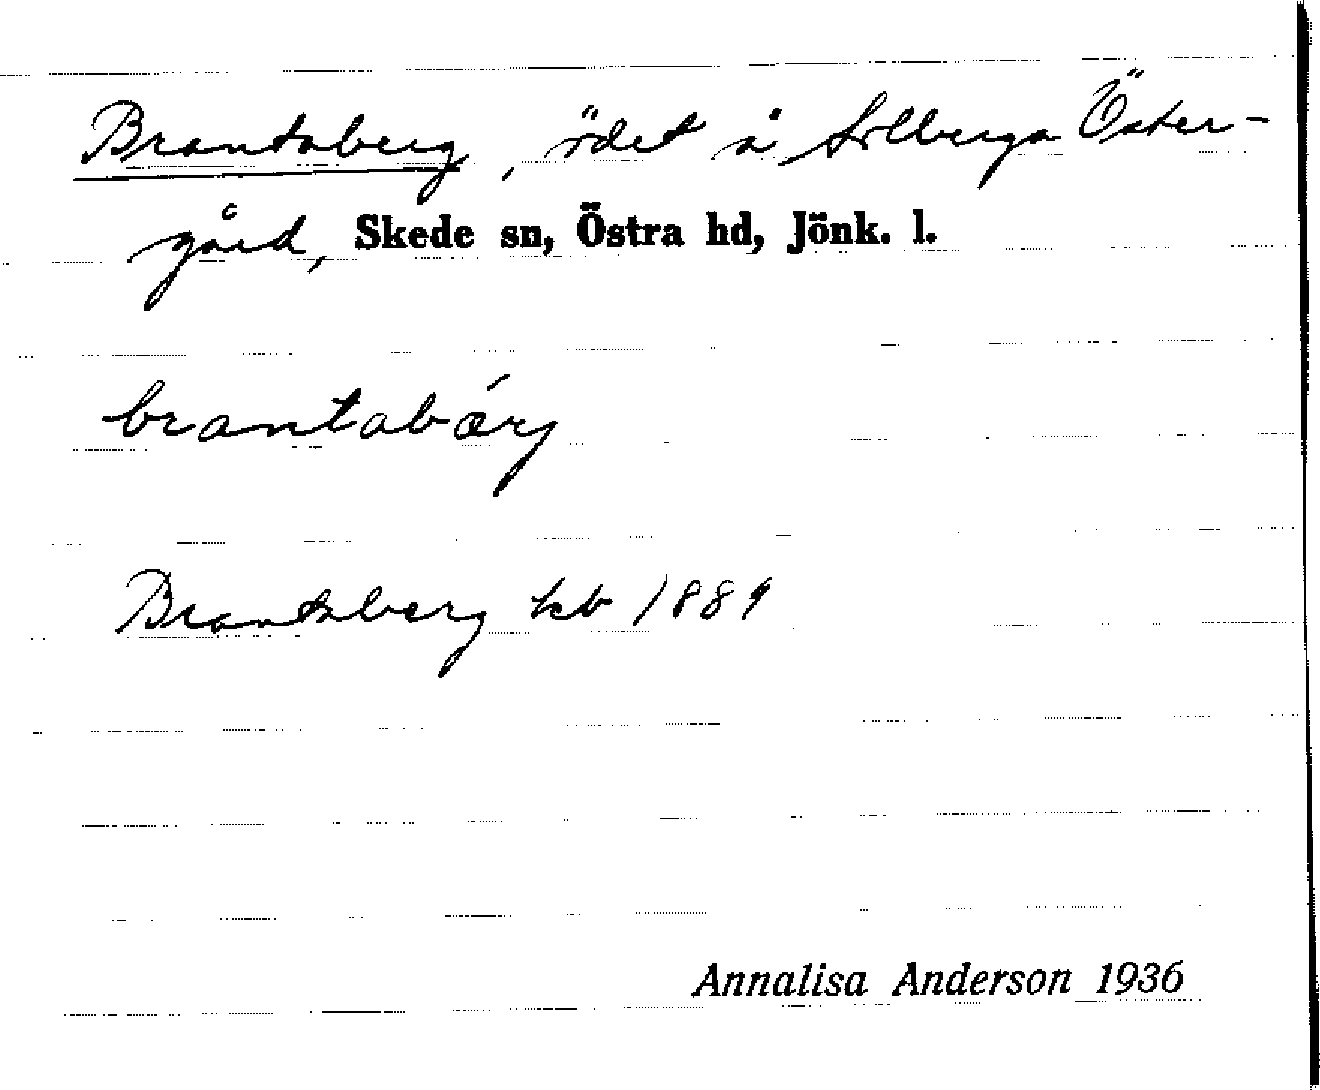 Brantaberg, ödet å Solberga Öster-
gård, Skede sn, Östra hd, Jönk. l.
brantabärj
Brantaberg kb 1889
Annalisa Anderson 1936